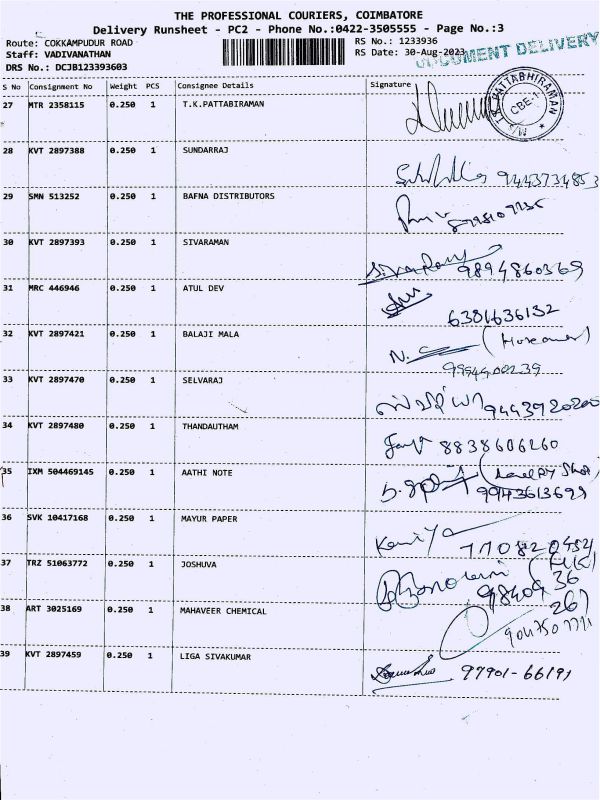 THE PROFESSIONAL COURIERS, COIMBATORE
Delivery Runsheet - PC2 - Phone No.:0422-3505555 - Page No.:3
Route: COKKAMPUDUR ROAD RS No.: 1233936
Staff: VADIVANATHAN RS Date: 30-Aug-2023
DOCUMENT DELIVERY
DRS No.: DCJB123393603
S No Consignment No Weight PCS Consignee Details Signature
27 MTR 2358115 0.250 1 T.K.PATTABIRAMAN
PATTABHIRAMAN
CBE-1
28 KVT 2897388 0.250 1 SUNDARRAJ
9443734853
29 SMN 513252 0.250 1 BAFNA DISTRIBUTORS
30 KVT 2897393 0.250 1 SIVARAMAN
9894860369
31 MRC 446946 0.250 1 ATUL DEV
6381636132
32 KVT 2897421 0.250 1 BALAJI MALA
33 KVT 2897470 0.250 1 SELVARAJ
9443920200
34 KVT 2897480 0.250 1 THANDAUTHAM
8838606260
35 IXM 504469145 0.250 1 AATHI NOTE
9943613699
36 SVK 10417168 0.250 1 MAYUR PAPER
37 TRZ 51063772 0.250 1 JOSHUVA
98409 36
267
38 ART 3025169 0.250 1 MAHAVEER CHEMICAL
39 KVT 2897459 0.250 1 LIGA SIVAKUMAR
97901-66191